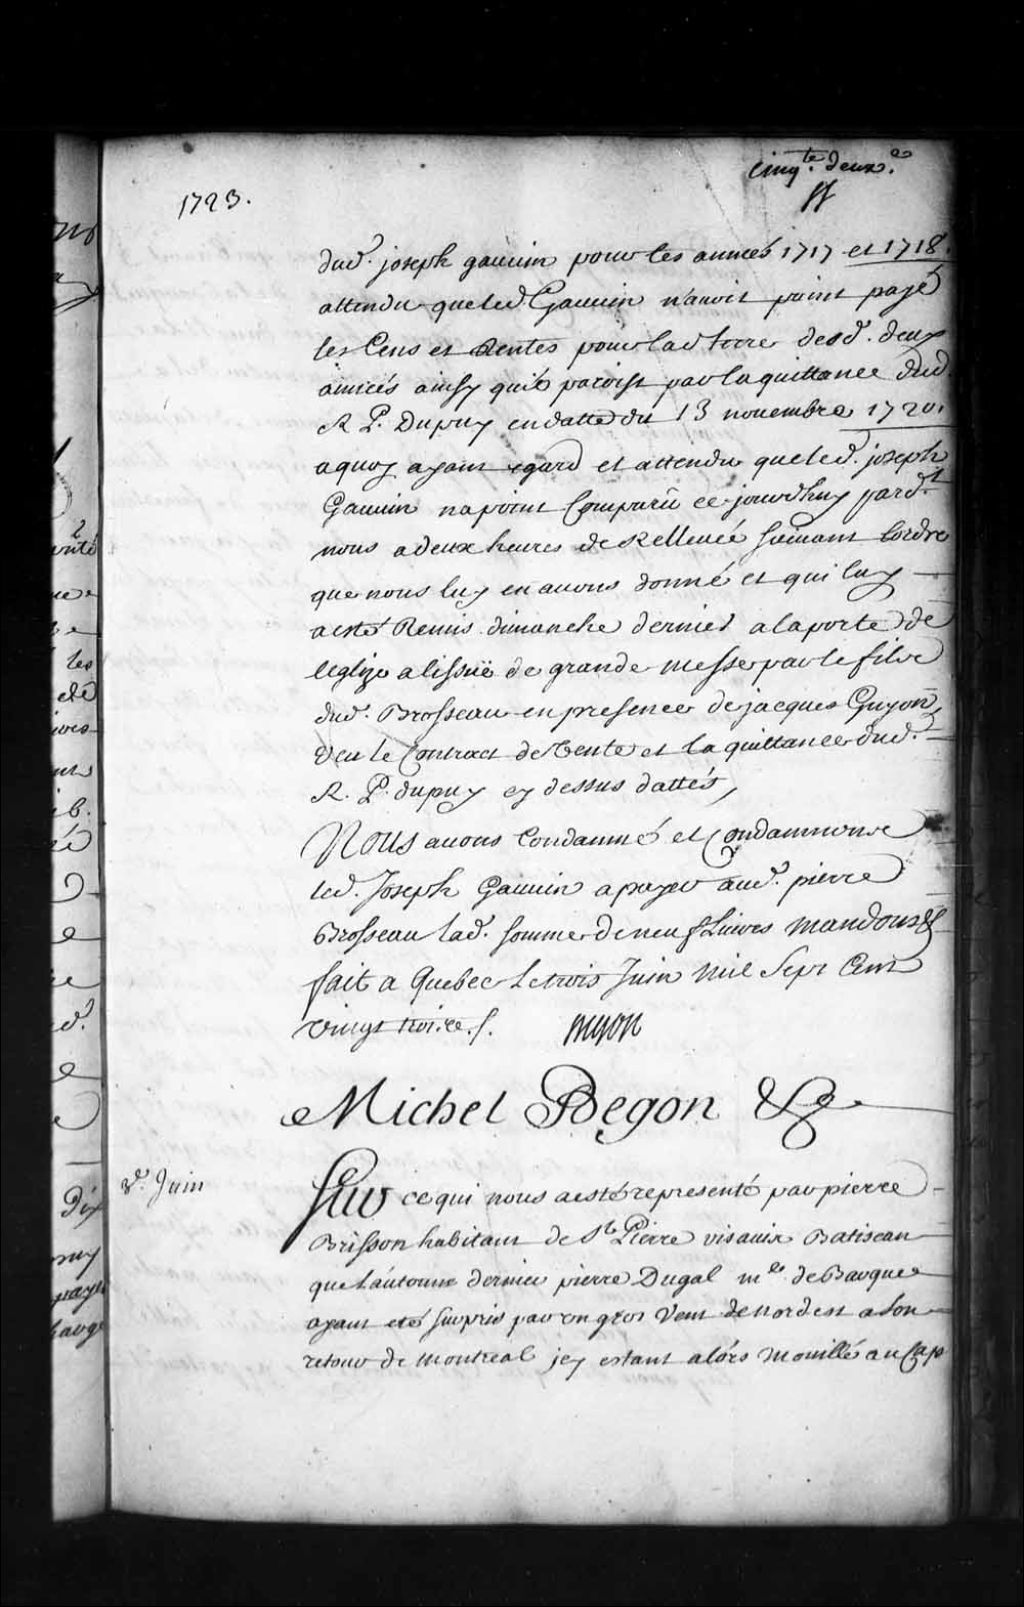 cinq.te deux.e
1723.
dud. joseph gauuin pour les années 1717 et 1718.
attendu que led. Gauuin n'auoit point payé
les Cens et Rentes pour lad terre desd. deux
années ainsy qu'il paroist par la quittance dud.
R. P. Dupuy en datte du 13 nouembre 1720.
a quoy ayant egard et attendu que led. joseph
Gauuin na point Comparû ce jourdhuy pard.t
nous a deux heures de Relleueé suiuant l'ordre
que nous luy en auons donné et qui luy
a esté Remis dimanche dernier a la porte de
leglize a lissuë de grande messe par le fils
dud. Brosseau en presence de jacques Guyon,
Veu le Contract de Vente et la quittance dud.
R. P. dupuy cy dessus dattés,
Nous auons Condamné et Condamnons
led. Joseph Gauuin a payer aud. pierre
Brosseau lad. somme de neuf Liures mandons &
fait a Quebec le trois Juin mil Sept Cent
vingt trois. /.
Michel Begon &c.
3e. Juin
Sur ce qui nous a esté representé par pierre
Brisson habitant de St Pierre vis auis Batiscan
que l'autonne dernier pierre Dugal m.e de Barque
ayant eté surpris par un gros Vent de nordest a son
retour de montreal jcy estant alors mouillé au Cap